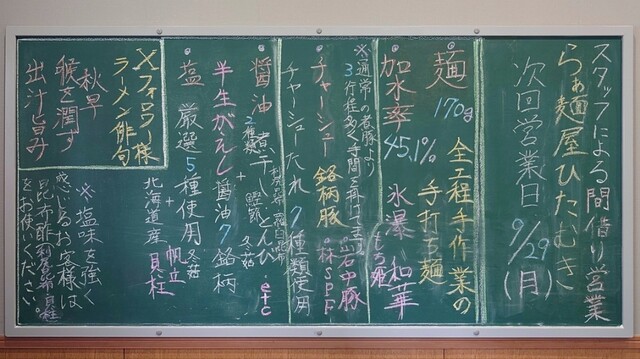 スタッフによる間借り営業
らぁ麺屋ひたむきに
次回営業日
9/29(月)
麺 170g 全工程手作業の
手打ち麺
加水率 45.1% 氷瀑 和華
もち姫
チャーシュー 銘柄豚 岩中豚
林SPF
※通常の煮豚より
3行程多く手間を掛けて
チャーシューたれ 7種類使用
醤油 煮干 2種類 + 利尻昆布 羅臼昆布
鰹節 どんぴ 冬菇 etc
半生がえし 醤油7銘柄
塩 厳選5種使用 冬菇
+ 帆立
北海道産 貝柱
Xフォロワー様
ラーメン俳句
秋早
喉を潤す
出汁旨み
※塩味を強く
感じるお客様は
昆布酢(利尻昆布
をお使いください。